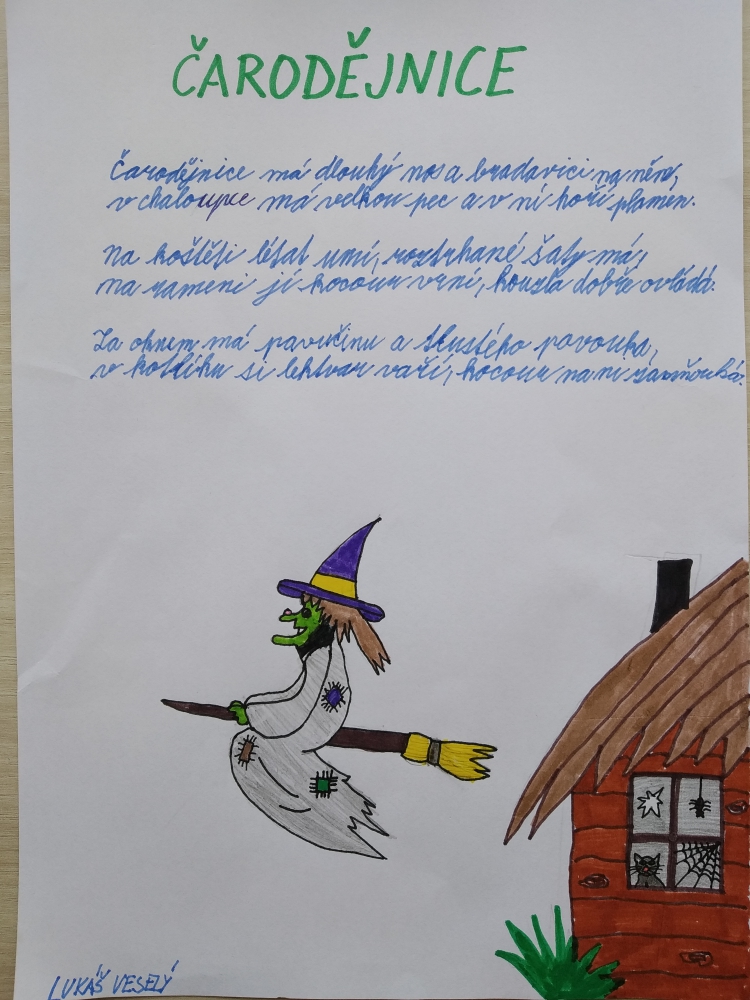 ČARODĚJNICE
Čarodějnice má dlouhý nos a bradavici na něm,
v chaloupce má velkou pec a v ní hoří plamen.
Na koštěti létat umí, roztrhané šaty má,
na rameni jí kocour vrní, kouzla dobře ovládá.
Za oknem má pavučinu a tlustého pavouka,
v kotlíku si lektvar vaří, kocour na ni zamňouká.
LUKÁŠ VESELÝ